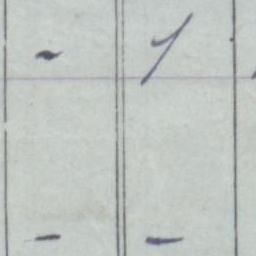 - 1
- -